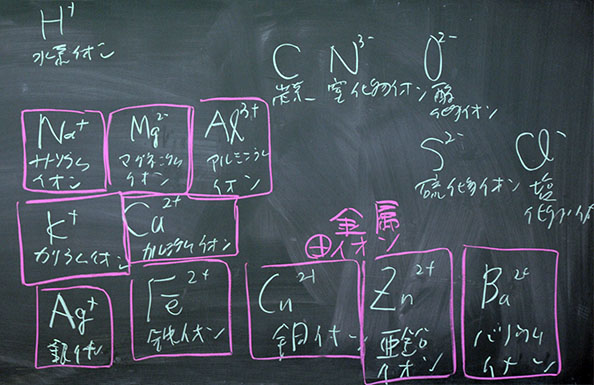 H⁺
水素イオン
C N³⁻ O²⁻
炭素 窒化物イオン 酸化物イオン
Na⁺ Mg²⁻ Al³⁺
ナトリウムイオン マグネシウムイオン アルミニウムイオン
S²⁻ Cl⁻
硫化物イオン 塩化物イオン
K⁺ Ca²⁺
カリウムイオン カルシウムイオン
金属
⊕イオン
Ag⁺ Fe²⁺ Cu²⁺ Zn²⁺ Ba²⁺
銀イオン 鉄イオン 銅イオン 亜鉛イオン バリウムイオン